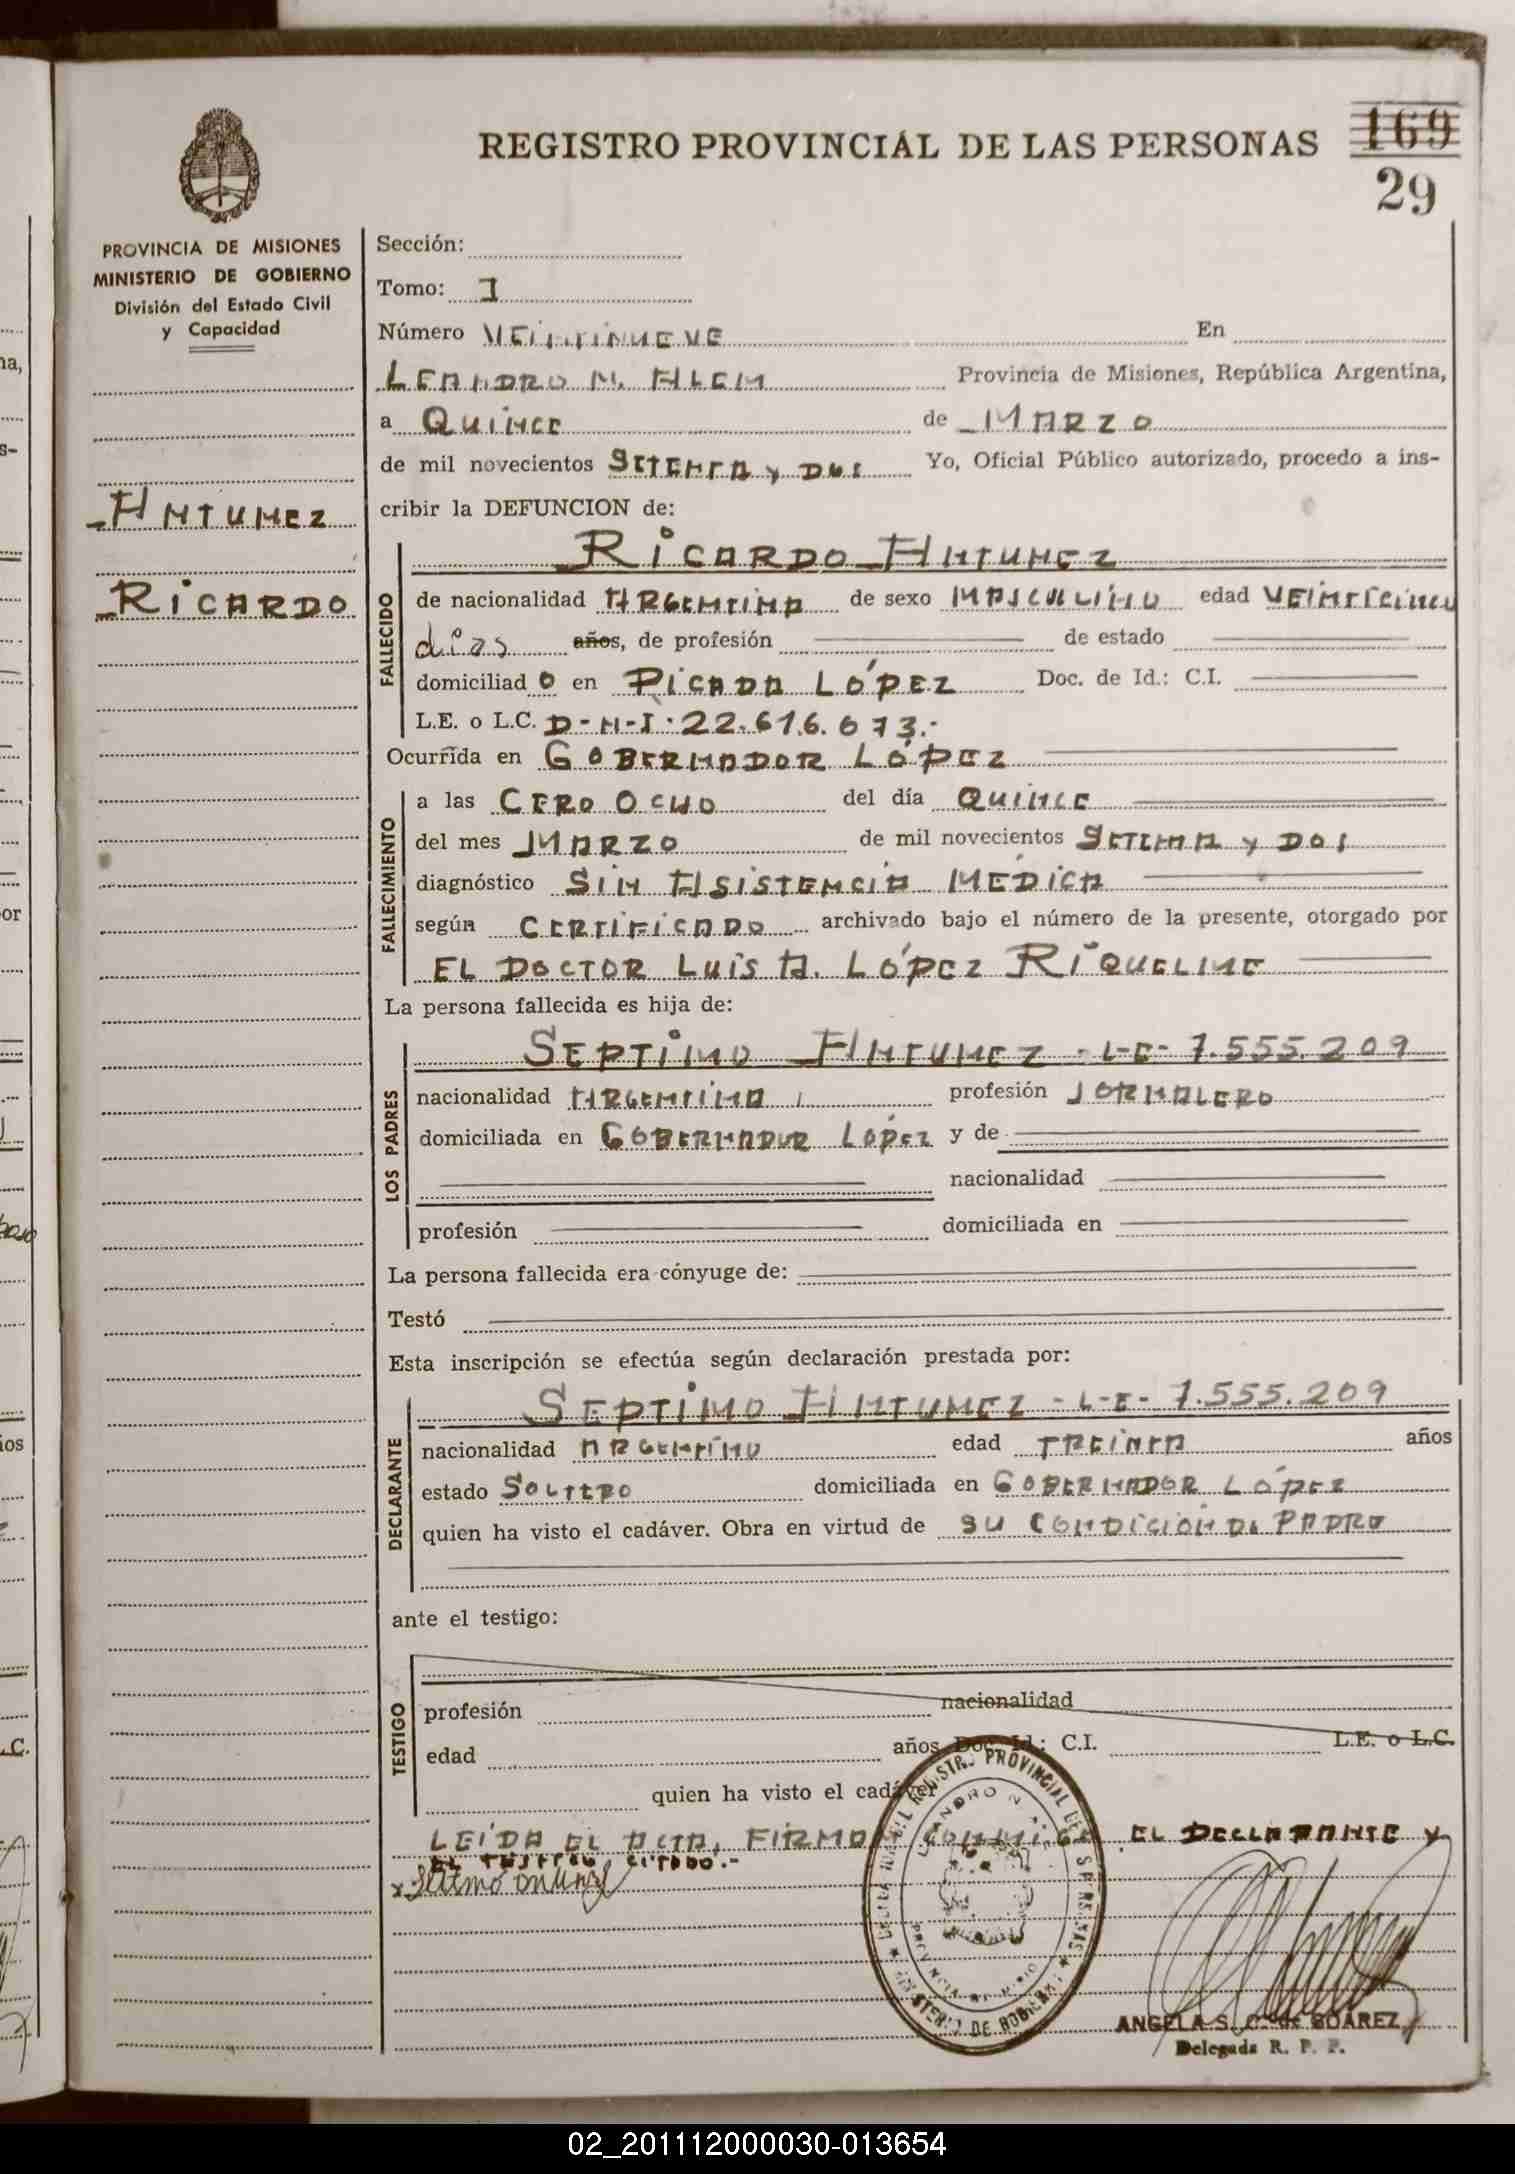 REGISTRO PROVINCIAL DE LAS PERSONAS
169
29
PROVINCIA DE MISIONES
MINISTERIO DE GOBIERNO
División del Estado Civil
y Capacidad
ANTUNEZ
RICARDO
Sección:
Tomo: I
Número VEINTINUEVE En
LEANDRO N. ALEM Provincia de Misiones, República Argentina,
a QUINCE de MARZO
de mil novecientos SETENTA y DOS Yo, Oficial Público autorizado, procedo a ins-
cribir la DEFUNCION de:
FALLECIDO
RICARDO ANTUNEZ
de nacionalidad ARGENTINA de sexo MASCULINO edad VEINTICINCO
dias años, de profesión de estado
domiciliado en PICADA LÓPEZ Doc. de Id.: C.I.
L.E. o L.C. D-N-I. 22.616.673.-
Ocurrida en GOBERNADOR LÓPEZ
FALLECIMIENTO
a las CERO OCHO del día QUINCE
del mes MARZO de mil novecientos SETENTA y DOS
diagnóstico SIN ASISTENCIA MÉDICA
según CERTIFICADO archivado bajo el número de la presente, otorgado por
EL DOCTOR LUIS A. LÓPEZ RIQUELME
La persona fallecida es hija de:
LOS PADRES
SEPTIMO ANTUNEZ - L-E- 7.555.209
nacionalidad ARGENTINA profesión JORNALERO
domiciliada en GOBERNADOR LÓPEZ y de
nacionalidad
profesión domiciliada en
La persona fallecida era cónyuge de:
Testó
Esta inscripción se efectúa según declaración prestada por:
DECLARANTE
SEPTIMO ANTUNEZ - L-E- 7.555.209
nacionalidad ARGENTINO edad TREINTA años
estado SOLTERO domiciliada en GOBERNADOR LÓPEZ
quien ha visto el cadáver. Obra en virtud de SU CONDICIÓN DE PADRE
ante el testigo:
TESTIGO
profesión nacionalidad
edad años Doc. Id.: C.I. L.E. o L.C.
quien ha visto el cadáver
LEÍDA EL ACTA, FIRMAN CONMIGO EL DECLARANTE Y
EL TESTIGO CITADO.-
REGISTRO PROVINCIAL DE LAS PERSONAS
LEANDRO N. ALEM
PROVINCIA DE MISIONES
MINISTERIO DE GOBIERNO
ANGELA S. C. de SUAREZ
Delegada R. P. P.
02_201112000030-013654